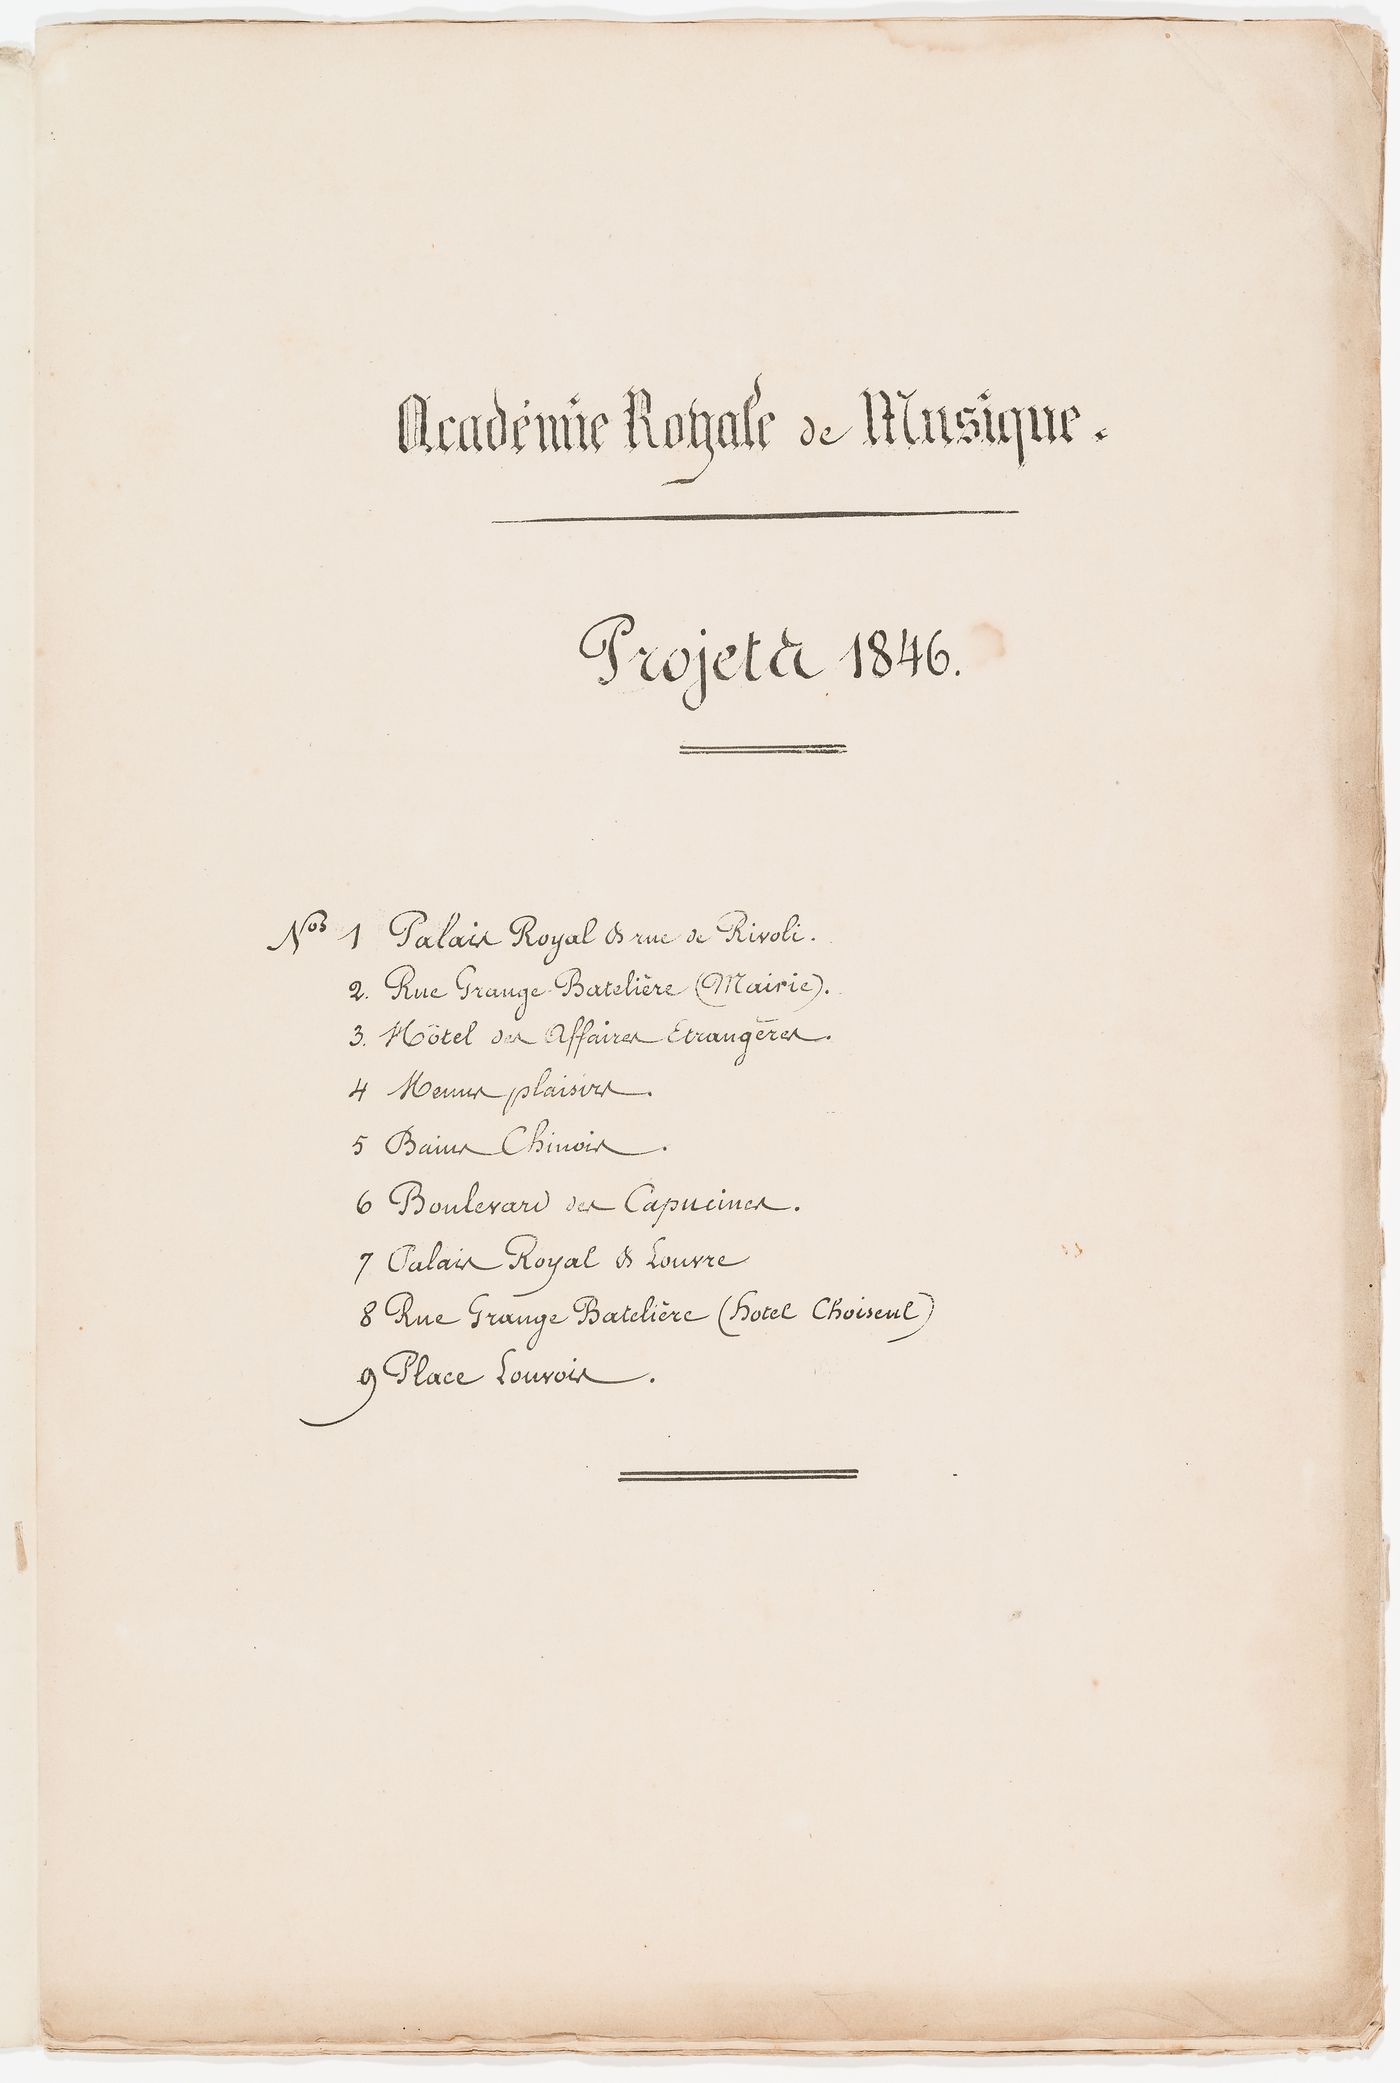 Académie Royale de Musique.
Projets 1846.
Nos 1 Palais Royal & rue de Rivoli.
2. Rue Grange Batelière (Mairie).
3. Hôtel des Affaires Etrangères.
4 Menus plaisirs.
5 Bains Chinois.
6 Boulevard des Capucines.
7 Palais Royal & Louvre
8 Rue Grange Batelière (hotel Choiseul)
9 Place Louvois.